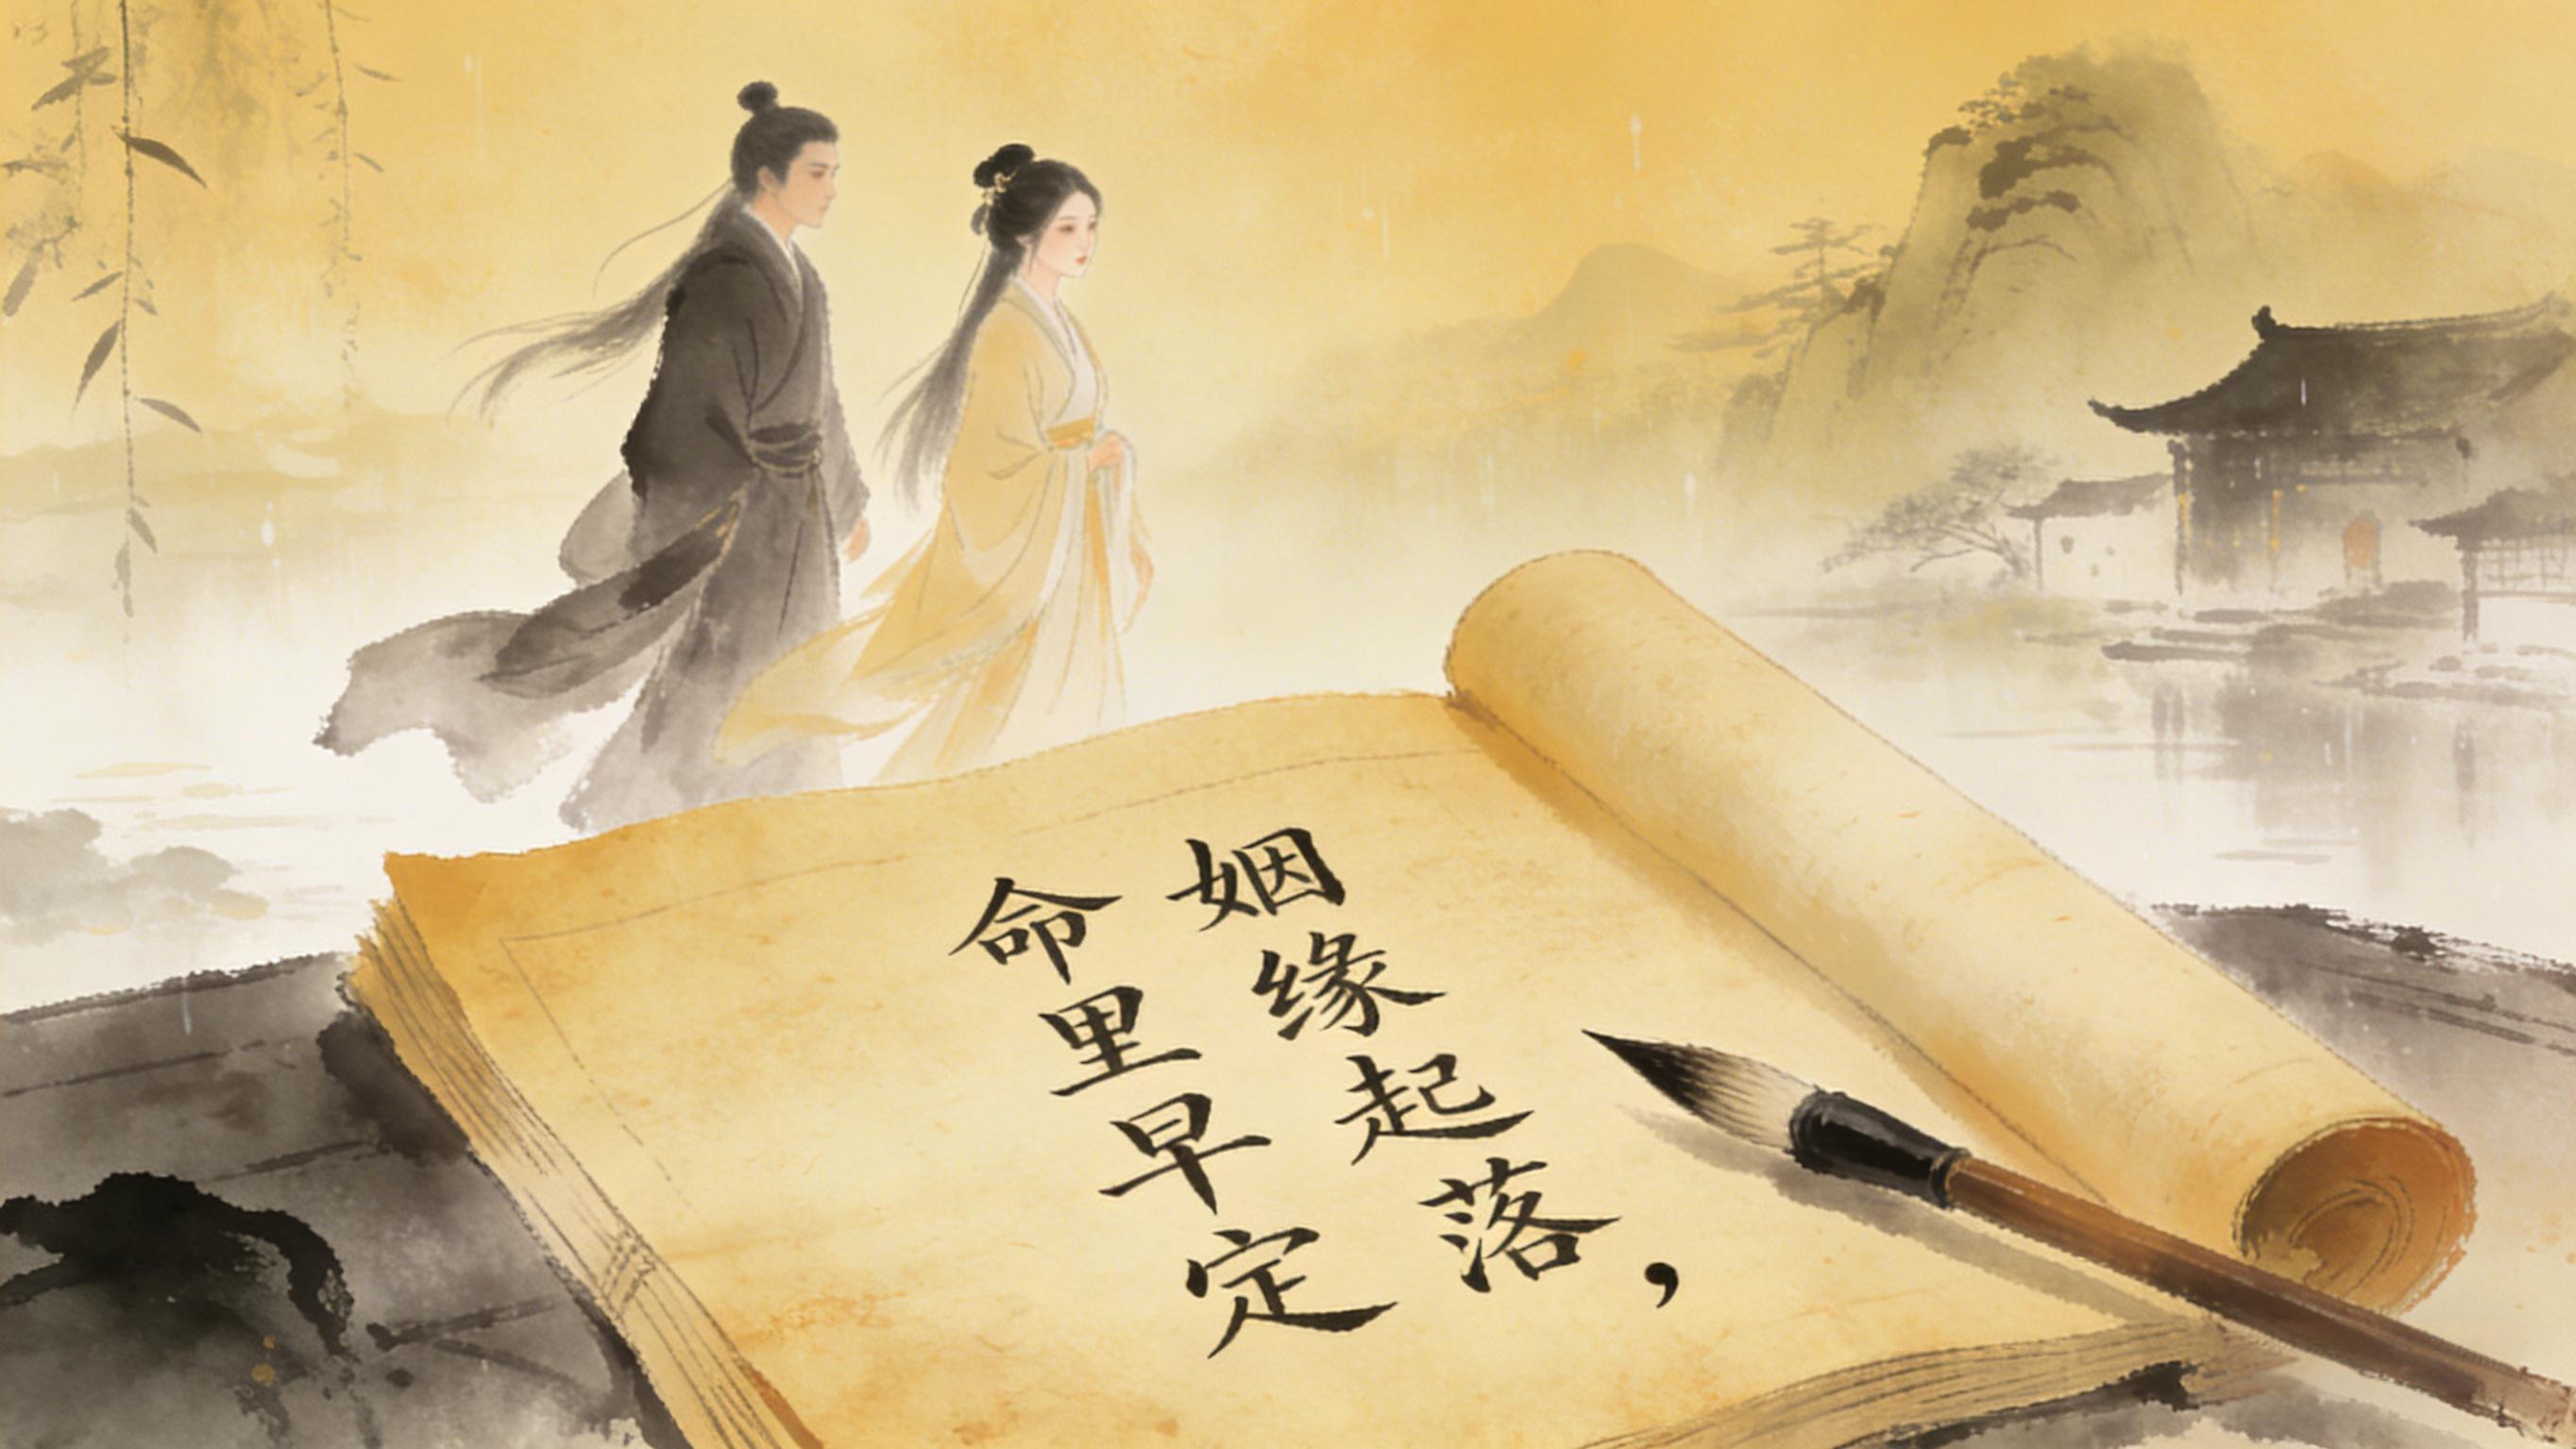 姻缘起落，
命里早定